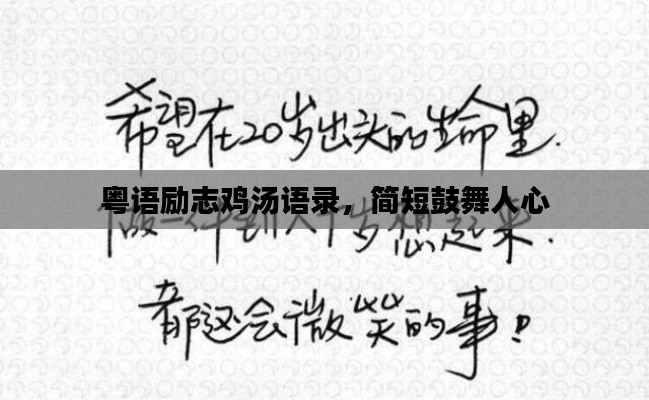 希望在20岁出头的生命里.
粤语励志鸡汤语录，简短鼓舞人心
做一件到八十岁想起来.
都还会微笑的事!